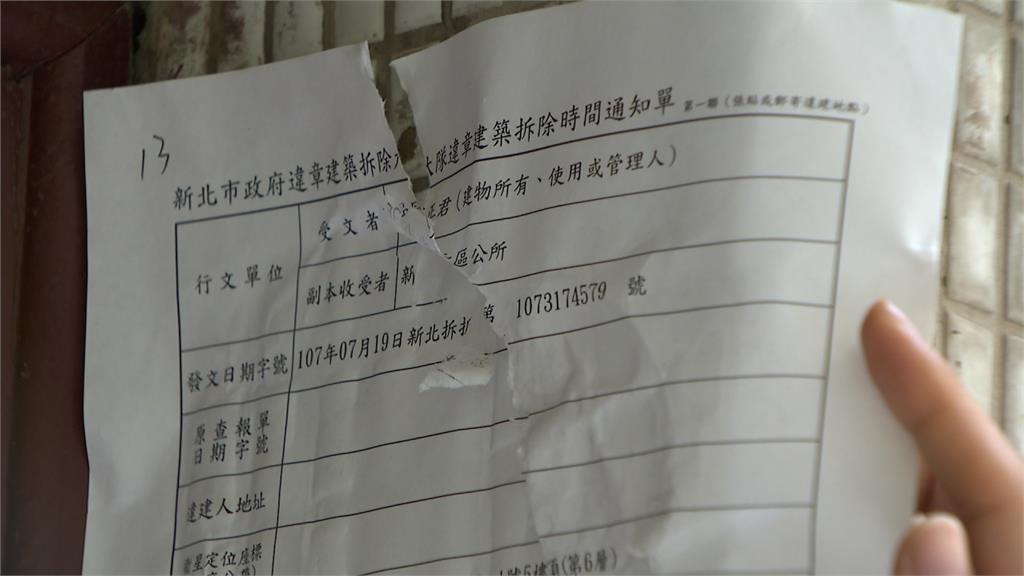 13
新北市政府違章建築拆除大隊違章建築拆除時間通知單 第一聯（張貼或郵寄違建地點）
行文單位
受文者 君(建物所有、使用或管理人)
副本收受者 新 區公所
發文日期字號 107年07月19日新北拆拆 第 1073174579 號
原查報單
日期字號
違建人地址
衛星定位座標
號5樓頂(第6層)